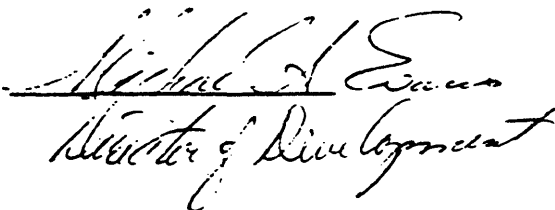 Michael A Evans
Director of Development